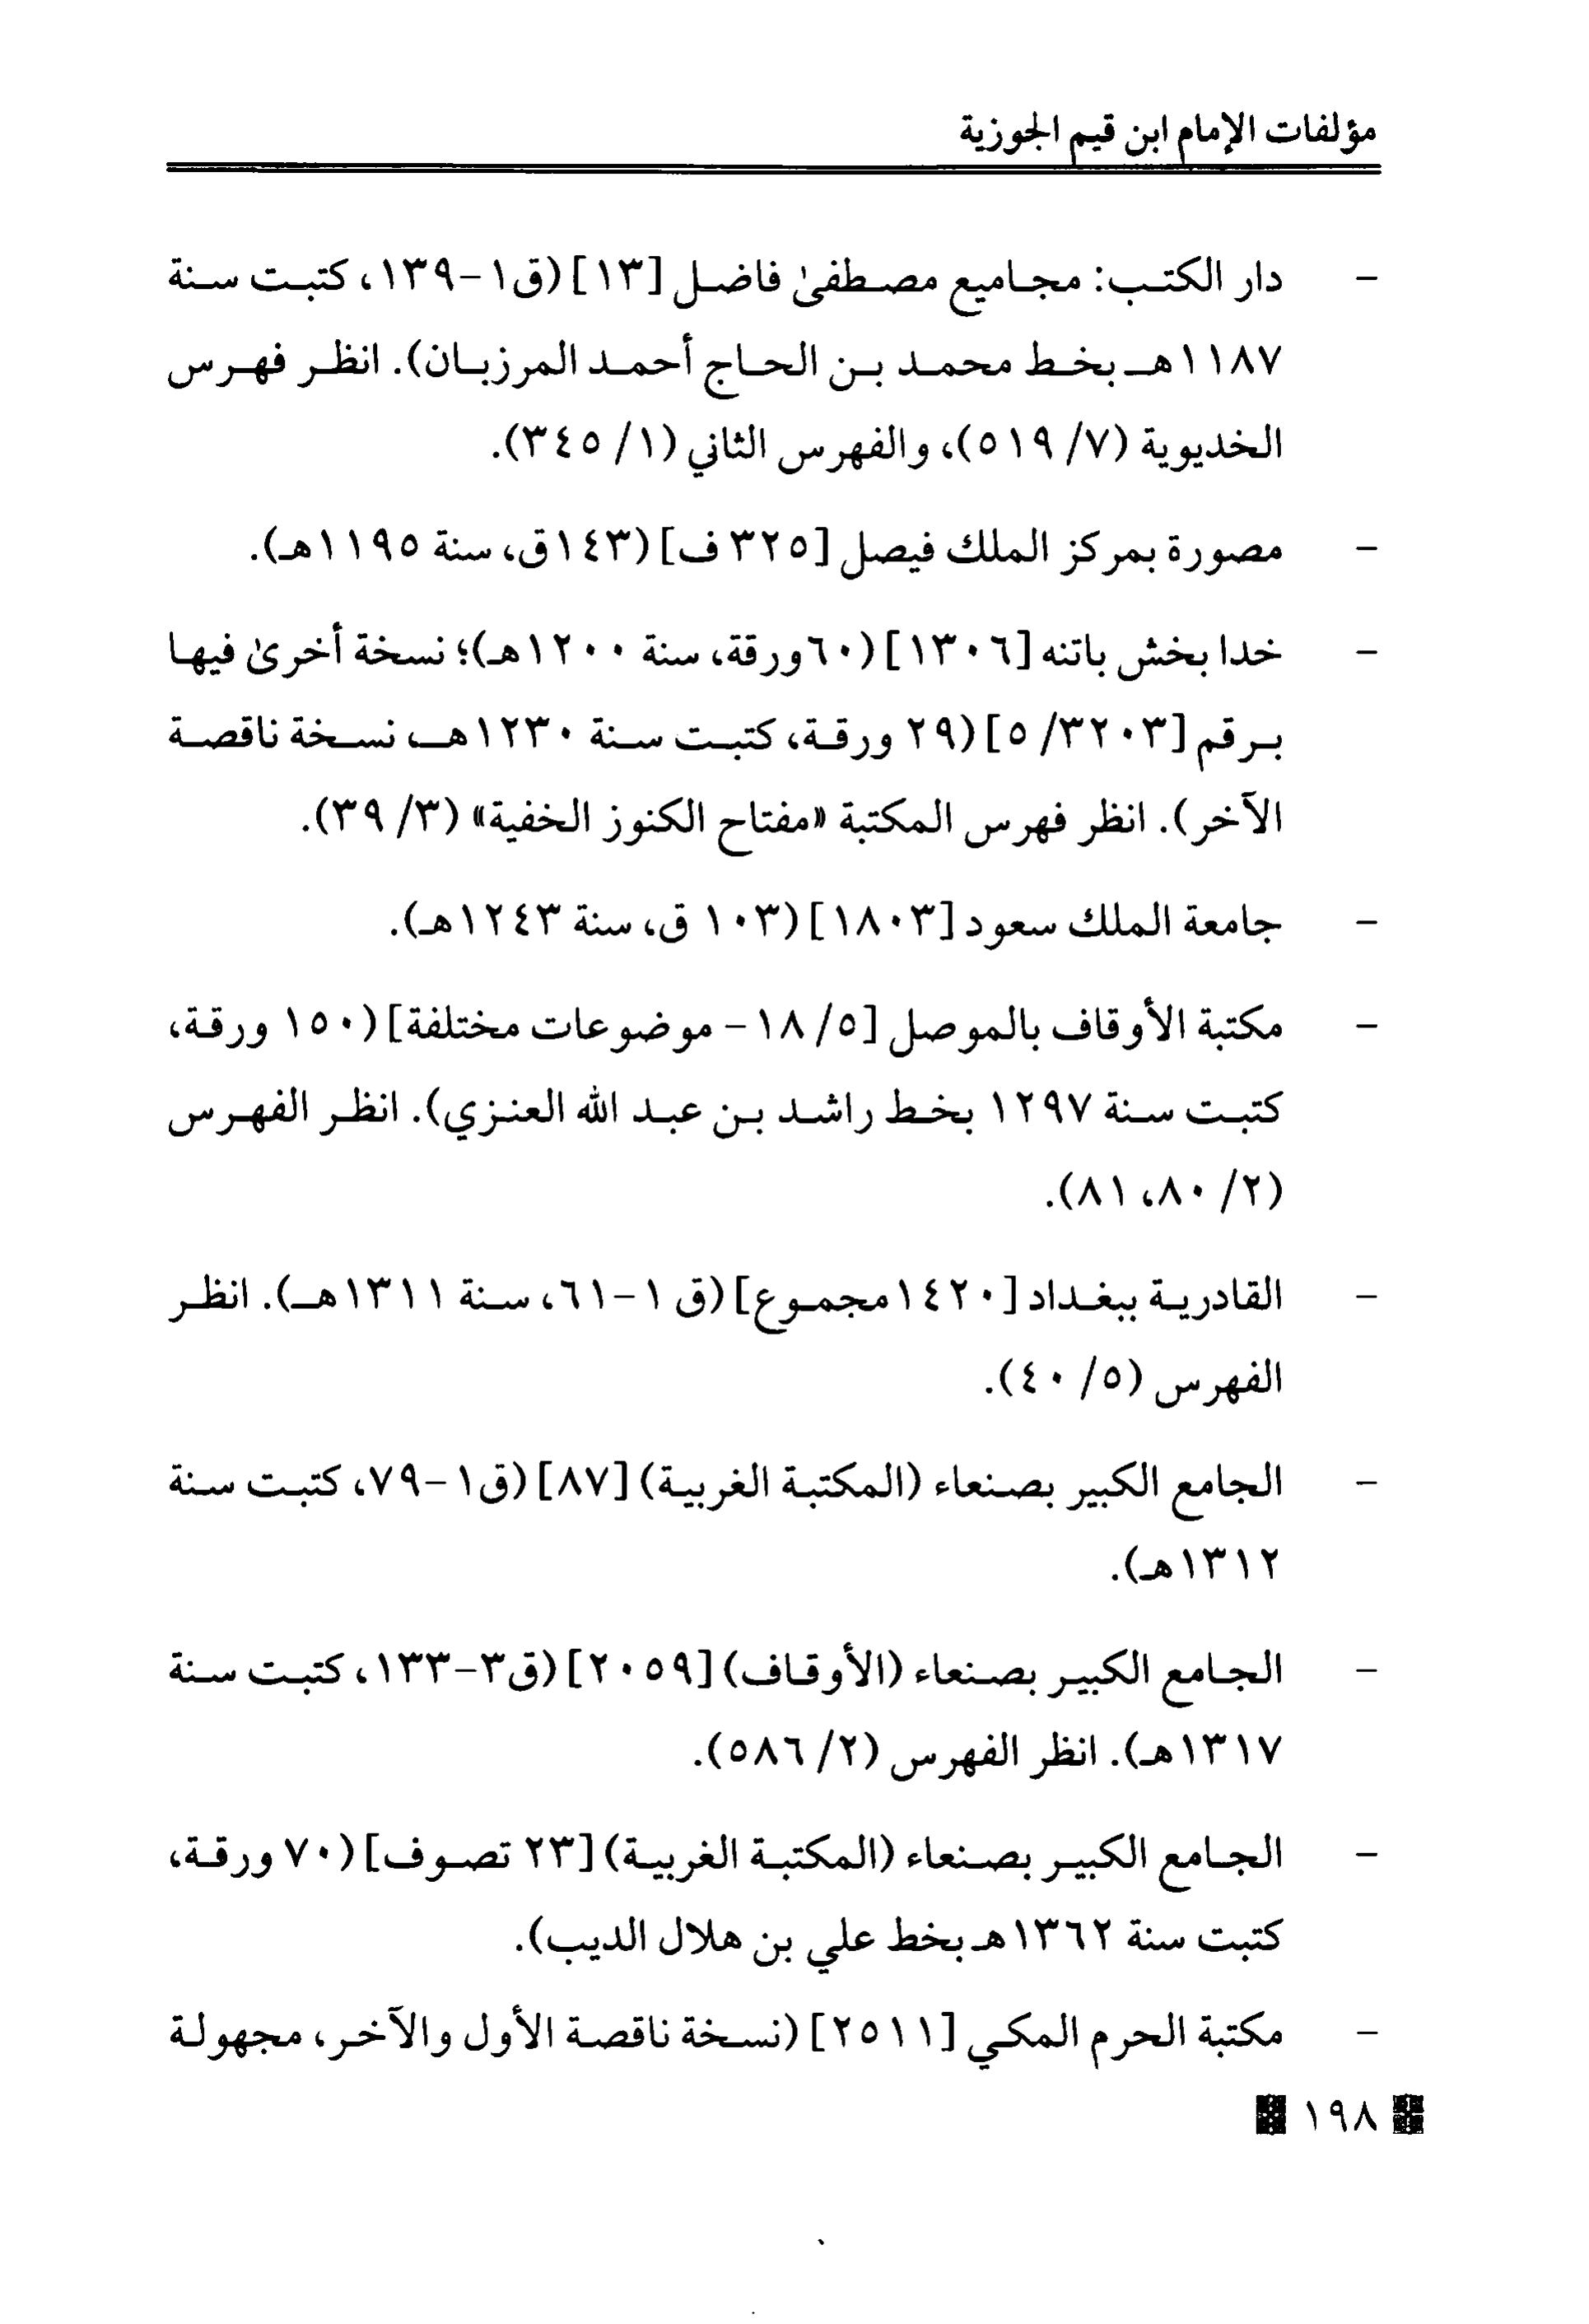 مؤلفات الإمام ابن قيم الجوزية
- دار الكتب: مجاميع مصطفىٰ فاضل [١٣] (ق١-١٣٩، كتبت سنة
١١٨٧هـ بخط محمد بن الحاج أحمد المرزبان). انظر فهرس
الخديوية (٧/ ٥١٩)، والفهرس الثاني (١/ ٣٤٥).
- مصورة بمركز الملك فيصل [٣٢٥ ف] (١٤٣ق، سنة ١١٩٥هـ).
- خدا بخش باتنه [١٣٠٦] (٦٠ورقة، سنة ١٢٠٠هـ)؛ نسخة أخرىٰ فيها
برقم [٣٢٠٣/ ٥] (٢٩ ورقة، كتبت سنة ١٢٣٠هـ، نسخة ناقصة
الآخر). انظر فهرس المكتبة «مفتاح الكنوز الخفية» (٣/ ٣٩).
- جامعة الملك سعود [١٨٠٣] (١٠٣ ق، سنة ١٢٤٣هـ).
- مكتبة الأوقاف بالموصل [٥/ ١٨- موضوعات مختلفة] (١٥٠ ورقة،
كتبت سنة ١٢٩٧ بخط راشد بن عبد الله العنزي). انظر الفهرس
(٢/ ٨٠، ٨١).
- القادرية ببغداد [١٤٢٠مجموع] (ق ١-٦١، سنة ١٣١١هـ). انظر
الفهرس (٥/ ٤٠).
- الجامع الكبير بصنعاء (المكتبة الغربية) [٨٧] (ق١-٧٩، كتبت سنة
١٣١٢هـ).
- الجامع الكبير بصنعاء (الأوقاف) [٢٠٥٩] (ق٣-١٣٣، كتبت سنة
١٣١٧هـ). انظر الفهرس (٢/ ٥٨٦).
- الجامع الكبير بصنعاء (المكتبة الغربية) [٢٣ تصوف] (٧٠ ورقة،
كتبت سنة ١٣٦٢هـ بخط علي بن هلال الديب).
- مكتبة الحرم المكي [٢٥١١] (نسخة ناقصة الأول والآخر، مجهولة
١٩٨